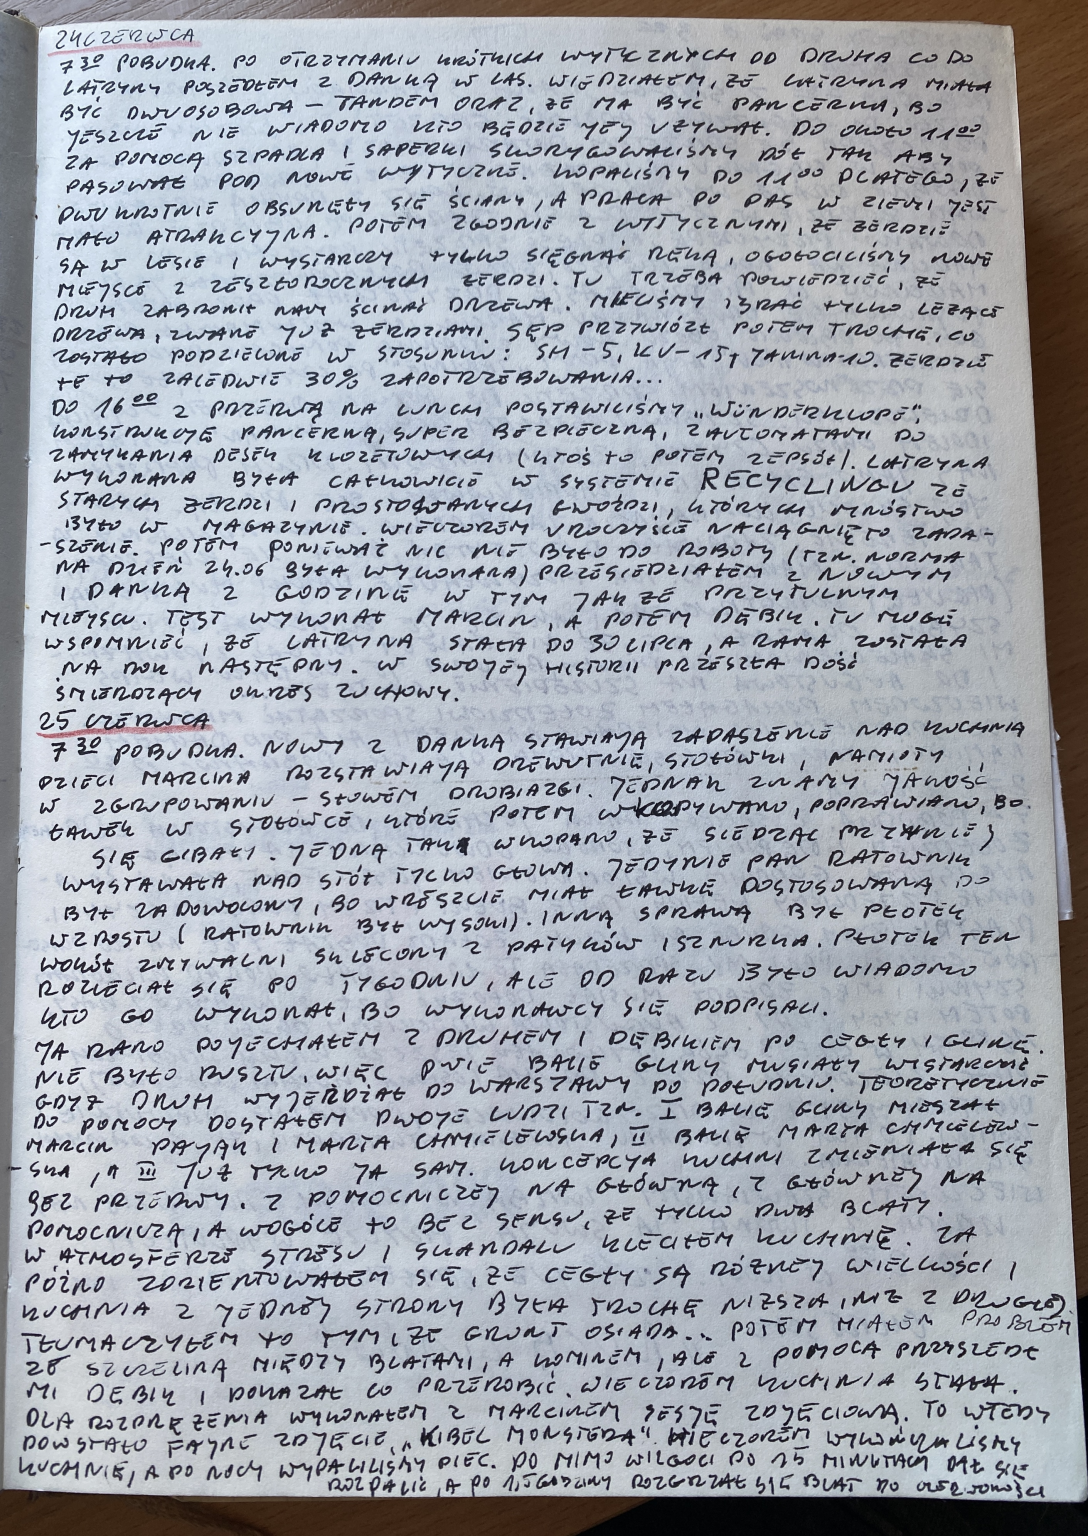 24 CZERWCA
7 30 POBUDKA. PO OTRZYMANIU KRÓTKICH WYTYCZNYCH OD DRUHA CO DO
LATRYNY POSZEDŁEM Z DANKĄ W LAS. WIEDZIAŁEM, ŻE LATRYNA MIAŁA
BYĆ DWUOSOBOWA – TANDEM ORAZ, ŻE MA BYĆ PANCERNA, BO
JESZCZE NIE WIADOMO KTO BĘDZIE JEJ UŻYWAŁ. DO OKOŁO 11 00
ZA POMOCĄ SZPADLA I SAPERKI SKORYGOWALIŚMY DÓŁ TAK ABY
PASOWAŁ POD NOWE WYTYCZNE. KOPALIŚMY DO 11 00 DLATEGO, ŻE
DWUKROTNIE OBSUNĘŁY SIĘ ŚCIANY, A PRACA PO PAS W ZIEMI JEST
MAŁO ATRAKCYJNA. POTEM ZGODNIE Z WYTYCZNYMI, ŻE ŻERDZIE
SĄ W LESIE I WYSTARCZY TYLKO SIĘGNĄĆ RĘKĄ, OGOŁOCILIŚMY NOWE
MIEJSCE Z ZESZŁOROCZNYCH ŻERDZI. TU TRZEBA POWIEDZIEĆ, ŻE
DRUH ZABRONIŁ NAM ŚCINAĆ DRZEWA. MIELIŚMY ZBRAĆ TYLKO LEŻĄCE
DRZEWA, ZWANE JUŻ ŻERDZIAMI. SĘP PRZYWIÓZŁ POTEM TROCHĘ, CO
ZOSTAŁO PODZIELONE W STOSUNKU: SH – 5, KV – 15, JANINA – 10. ŻERDZIE
TE TO ZALEDWIE 30% ZAPOTRZEBOWANIA...
DO 16 00 Z PRZERWĄ NA LUNCH POSTAWILIŚMY „WUNDERKLOPE",
KONSTRUKCJĘ PANCERNĄ, SUPER BEZPIECZNĄ, Z AUTOMATAMI DO
ZAMYKANIA DESEK KLOZETOWYCH (KTOŚ TO POTEM ZEPSÓŁ). LATRYNA
WYKONANA BYŁA CAŁKOWICIE W SYSTEMIE RECYCLINGU ZE
STARYCH ŻERDZI I PROSTOWANYCH GWOŹDZI, KTÓRYCH MNÓSTWO
BYŁO W MAGAZYNIE. WIECZOREM UROCZYŚCIE NACIĄGNIĘTO ZADA-
-SZENIE. POTEM PONIEWAŻ NIC NIE BYŁO DO ROBOTY (TZN. NORMA
NA DZIEŃ 24.06 BYŁA WYKONANA) PRZESIEDZIAŁEM Z NOWYM
I DANKĄ 2 GODZINY W TYM JAKŻE PRZYTULNYM
MIEJSCU. TEST WYKONAŁ MARCIN, A POTEM DĘBIK. TU MOGĘ
WSPOMNIEĆ, ŻE LATRYNA STAŁA DO 30 LIPCA, A RAMA ZOSTAŁA
NA ROK NASTĘPNY. W SWOJEJ HISTORII PRZESZŁA DOŚĆ
ŚMIERDZĄCY OKRES ZUCHOWY.
25 CZERWCA
7 30 POBUDKA. NOWY Z DANKĄ STAWIAJĄ ZADASZENIE NAD KUCHNIĄ
DZIECI MARCINA ROZSTAWIAJĄ DREWUTNIĘ, STOŁÓWKI, NAMIOTY
W ZGRUPOWANIU – SŁOWEM DROBIAZGI. JEDNAK ZNAMY JAKOŚĆ
ŁAWEK W STOŁÓWCE, KTÓRE POTEM WKOPYWANO, POPRAWIANO, BO
SIĘ GIBAŁY. JEDNĄ TAK WKOPANO, ŻE SIEDZĄC PRZY NIEJ
WYSTAWAŁA NAD STÓŁ TYLKO GŁOWA. JEDYNIE PAN RATOWNIK
BYŁ ZADOWOLONY, BO WRESZCIE MIAŁ ŁAWKĘ DOSTOSOWANĄ DO
WZROSTU (RATOWNIK BYŁ WYSOKI). INNĄ SPRAWĄ BYŁ PŁOTEK
WOKÓŁ ZMYWALNI SKLECONY Z PATYKÓW I SZNURKA. PŁOTEK TEN
ROZLECIAŁ SIĘ PO TYGODNIU, ALE OD RAZU BYŁO WIADOMO
KTO GO WYKONAŁ, BO WYKONAWCY SIĘ PODPISALI.
JA RANO POJECHAŁEM Z DRUHEM I DĘBIKIEM PO CEGŁY I GLINĘ.
NIE BYŁO RUSZTU, WIĘC DWIE BALIE GLINY MUSIAŁY WYSTARCZYĆ
GDYŻ DRUH WYJEŻDŻAŁ DO WARSZAWY PO POŁUDNIU. TEORETYCZNIE
DO POMOCY DOSTAŁEM DWOJE LUDZI TZN. I BALIĘ GLINY MIESZAŁ
MARCIN PAJĄK I MARTA CHMIELEWSKA, II BALIĘ MARTA CHMIELEW-
-SKA, A III JUŻ TYLKO JA SAM. KONCEPCJA KUCHNI ZMIENIAŁA SIĘ
BEZ PRZERWY. Z POMOCNICZEJ NA GŁÓWNĄ, Z GŁÓWNEJ NA
POMOCNICZĄ, A WOGÓLE TO BEZ SENSU, ŻE TYLKO DWA BLATY.
W ATMOSFERZE STRESU I SKANDALU KLECIŁEM KUCHNIĘ. ZA
PÓŹNO ZORIENTOWAŁEM SIĘ, ŻE CEGŁY SĄ RÓŻNEJ WIELKOŚCI I
KUCHNIA Z JEDNEJ STRONY BYŁA TROCHĘ NIŻSZA, NIŻ Z DRUGIEJ.
TŁUMACZYŁEM TO TYM, ŻE GRUNT OSIADA... POTEM MIAŁEM PROBLEM
ZE SZCZELINĄ MIĘDZY BLATAMI, A KOMINEM, ALE Z POMOCĄ PRZYSZEDŁ
MI DĘBIK I POKAZAŁ CO PRZEROBIĆ. WIECZOREM KUCHNIA STAŁA.
DLA ROZPRĘŻENIA WYKONAŁEM Z MARCINEM SESJĘ ZDJĘCIOWĄ. TO WTEDY
POWSTAŁO FAJNE ZDJĘCIE „KIBEL MONSTERA". WIECZOREM WYKOŃCZALIŚMY
KUCHNIĘ, A PO NOCY WYPALILIŚMY PIEC. PO MIMO WILGOCI PO 15 MINUTACH DAŁ SIĘ
ROZPALIĆ, A PO 1,5 GODZINY ROZGRZAŁ SIĘ BLAT DO CZERWONOŚCI